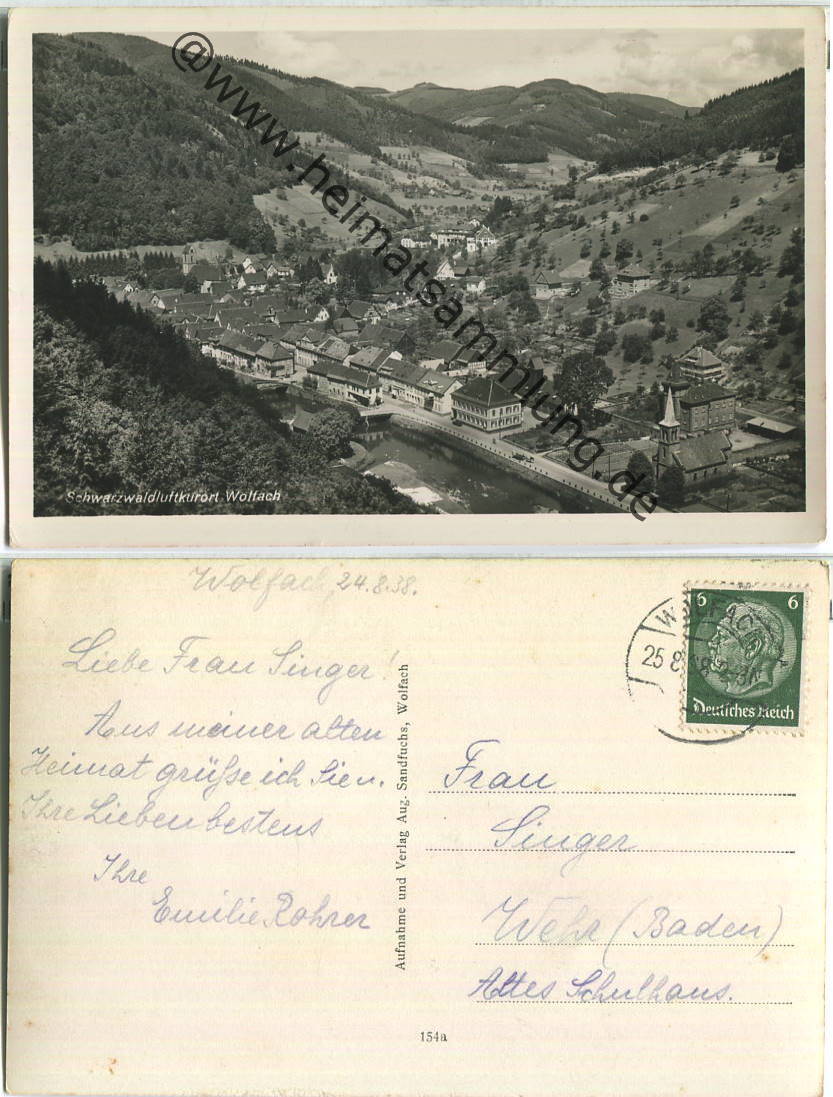 @www.heimatsammlung.de
Schwarzwaldluftkurort Wolfach
Wolfach, 24.8.38.
Liebe Frau Singer!
Aus meiner alten
Heimat grüße ich Sie u.
Ihre Lieben bestens
Ihre
Emilie Rohrer
Aufnahme und Verlag Aug. Sandfuchs, Wolfach
WOLFACH
25.8.38
6 6
Deutsches Reich
Frau
Singer
Wehr (Baden)
Altes Schulhaus.
154a